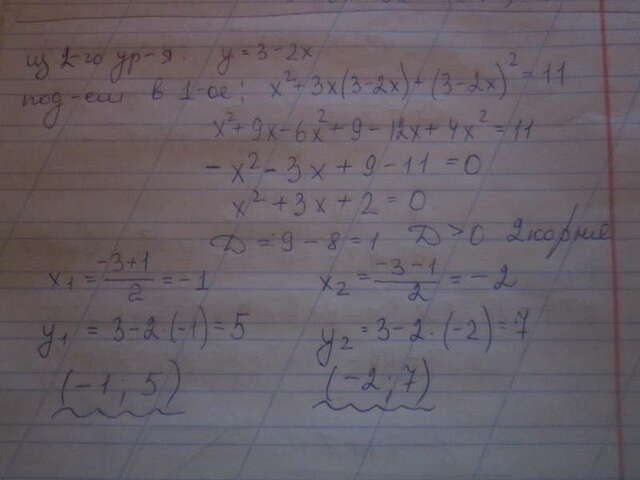 из 2-го ур-я: y = 3-2x
под-ем в 1-ое: x² + 3x(3-2x) + (3-2x)² = 11
x² + 9x - 6x² + 9 - 12x + 4x² = 11
- x² - 3x + 9 - 11 = 0
x² + 3x + 2 = 0
D = 9 - 8 = 1 D > 0 2 корня
x₁ = (-3+1)/2 = -1 x₂ = (-3-1)/2 = -2
y₁ = 3-2(-1) = 5 y₂ = 3-2·(-2) = 7
(-1, 5) (-2; 7)